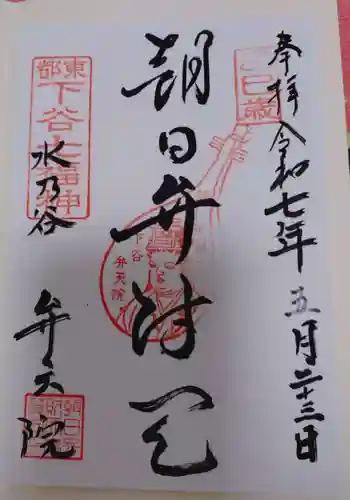 奉拝 令和七年五月二十三日
巳歳
朝日弁財天
下谷
弁天院
東都
下谷七福神
水乃谷
弁天院